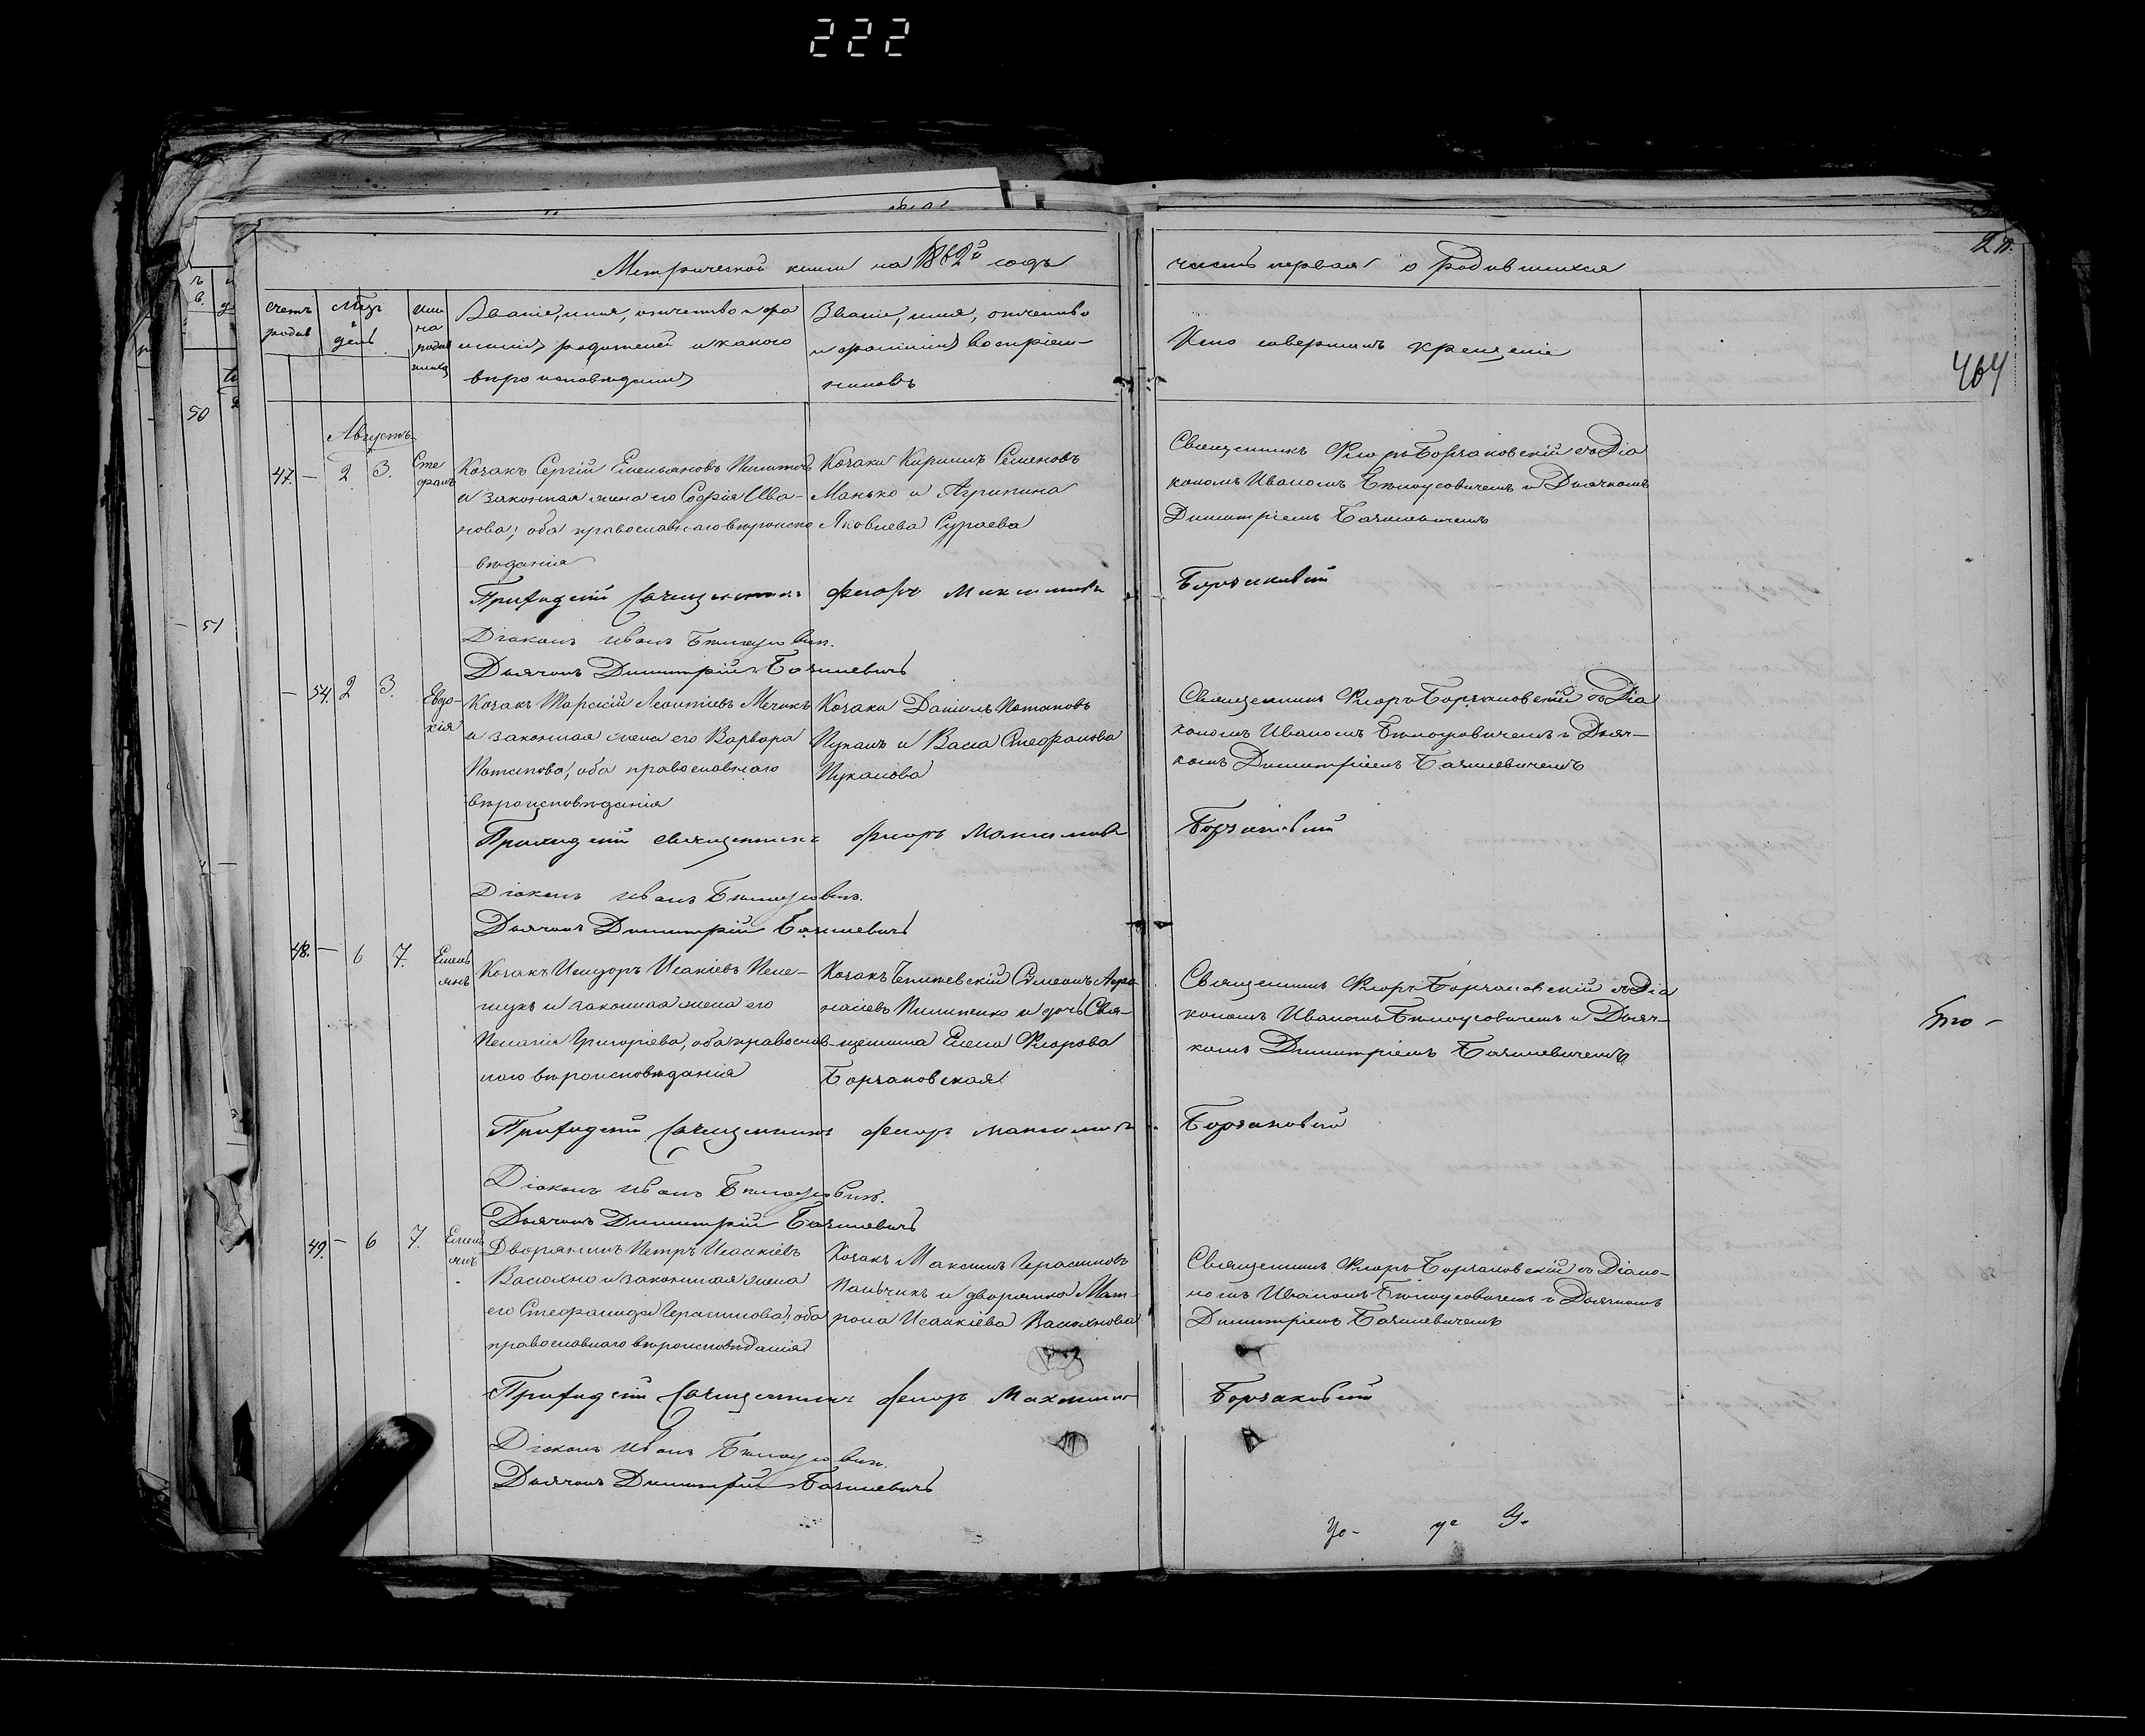 222
Метрической книги на 1862й годъ
часть первая о родившихся
2 п.
464
Счетъ родив
Мѣз и день
Имена родив
Званіе, имя, отчество и фа
милія родителей и какого
вѣроисповѣданія
Званіе, имя, отчество
и фамилія воспріем-
никовъ
Кто совершалъ крещеніе
50
51
Августъ
47. — 2 3.
Сте
фанъ
Козакъ Сергій Емельяновъ
и законная жена его Софія Ива-
нова; оба православнаго вѣроиспо
вѣданія
Козаки Кириллъ Семеновъ
Манько и Агрипина
Яковлева Сураева
Священникъ Флоръ Борзаковскій съ Діа
кономъ Иваномъ Бѣлоусовичемъ и Дьячкомъ
Димитріемъ Базилевичемъ
Приходскій Священникъ Флоръ Максимовъ
Борзаковскій
Діаконъ Иванъ Бѣлоусовичъ.
Дьячокъ Димитрій Базилевичъ
— 54. 2 3.
Евдо-
кія
Козакъ Леонтіевъ
и законная жена его Варвара
Потапова, оба православнаго
вѣроисповѣданія
Козаки Даніилъ Потаповъ
Пуканъ и Васса Стефанова
Пуканова
Священникъ Флоръ Борзаковскій съ Діа
кономъ Иваномъ Бѣлоусовичемъ и Дьяч-
комъ Димитріемъ Базилевичемъ
Приходскій священникъ Флоръ Максимовъ
Борзаковскій
Діаконъ Иванъ Бѣлоусовичъ.
Дьячокъ Димитрій Базилевичъ
48. — 6 7.
Емель
янъ
Козакъ Исидоръ Исакіевъ Пеле-
и законная жена его
Пелагія Григоріева, оба православ-
наго вѣроисповѣданія
Козакъ Симеонъ Афа
насіевъ Пилипенко и дочь Свя-
щенника Елена Флорова
Борзаковская.
Священникъ Флоръ Борзаковскій съ Діа
кономъ Иваномъ Бѣлоусовичемъ и Дьяч-
комъ Димитріемъ Базилевичемъ
Приходскій Священникъ Флоръ Максимовъ
Борзаковскій
Діаконъ Иванъ Бѣлоусовичъ.
Дьячокъ Димитрій Базилевичъ
49. — 6 7.
Емель
янъ
Дворянинъ Петръ Исаакіевъ
Васюхно и законная жена
его Стефанида Герасимова; оба
православнаго вѣроисповѣданія
Козакъ Максимъ Герасимовъ
Пальчикъ и дворянка Мат-
рона Исаакіева Васюхнова
Священникъ Флоръ Борзаковскій съ Діако-
номъ Иваномъ Бѣлоусовичемъ и Дьячкомъ
Димитріемъ Базилевичемъ
Приходскій Священникъ Флоръ Максимовъ
Борзаковскій
Діаконъ Иванъ Бѣлоусовичъ.
Дьячокъ Димитрій Базилевичъ